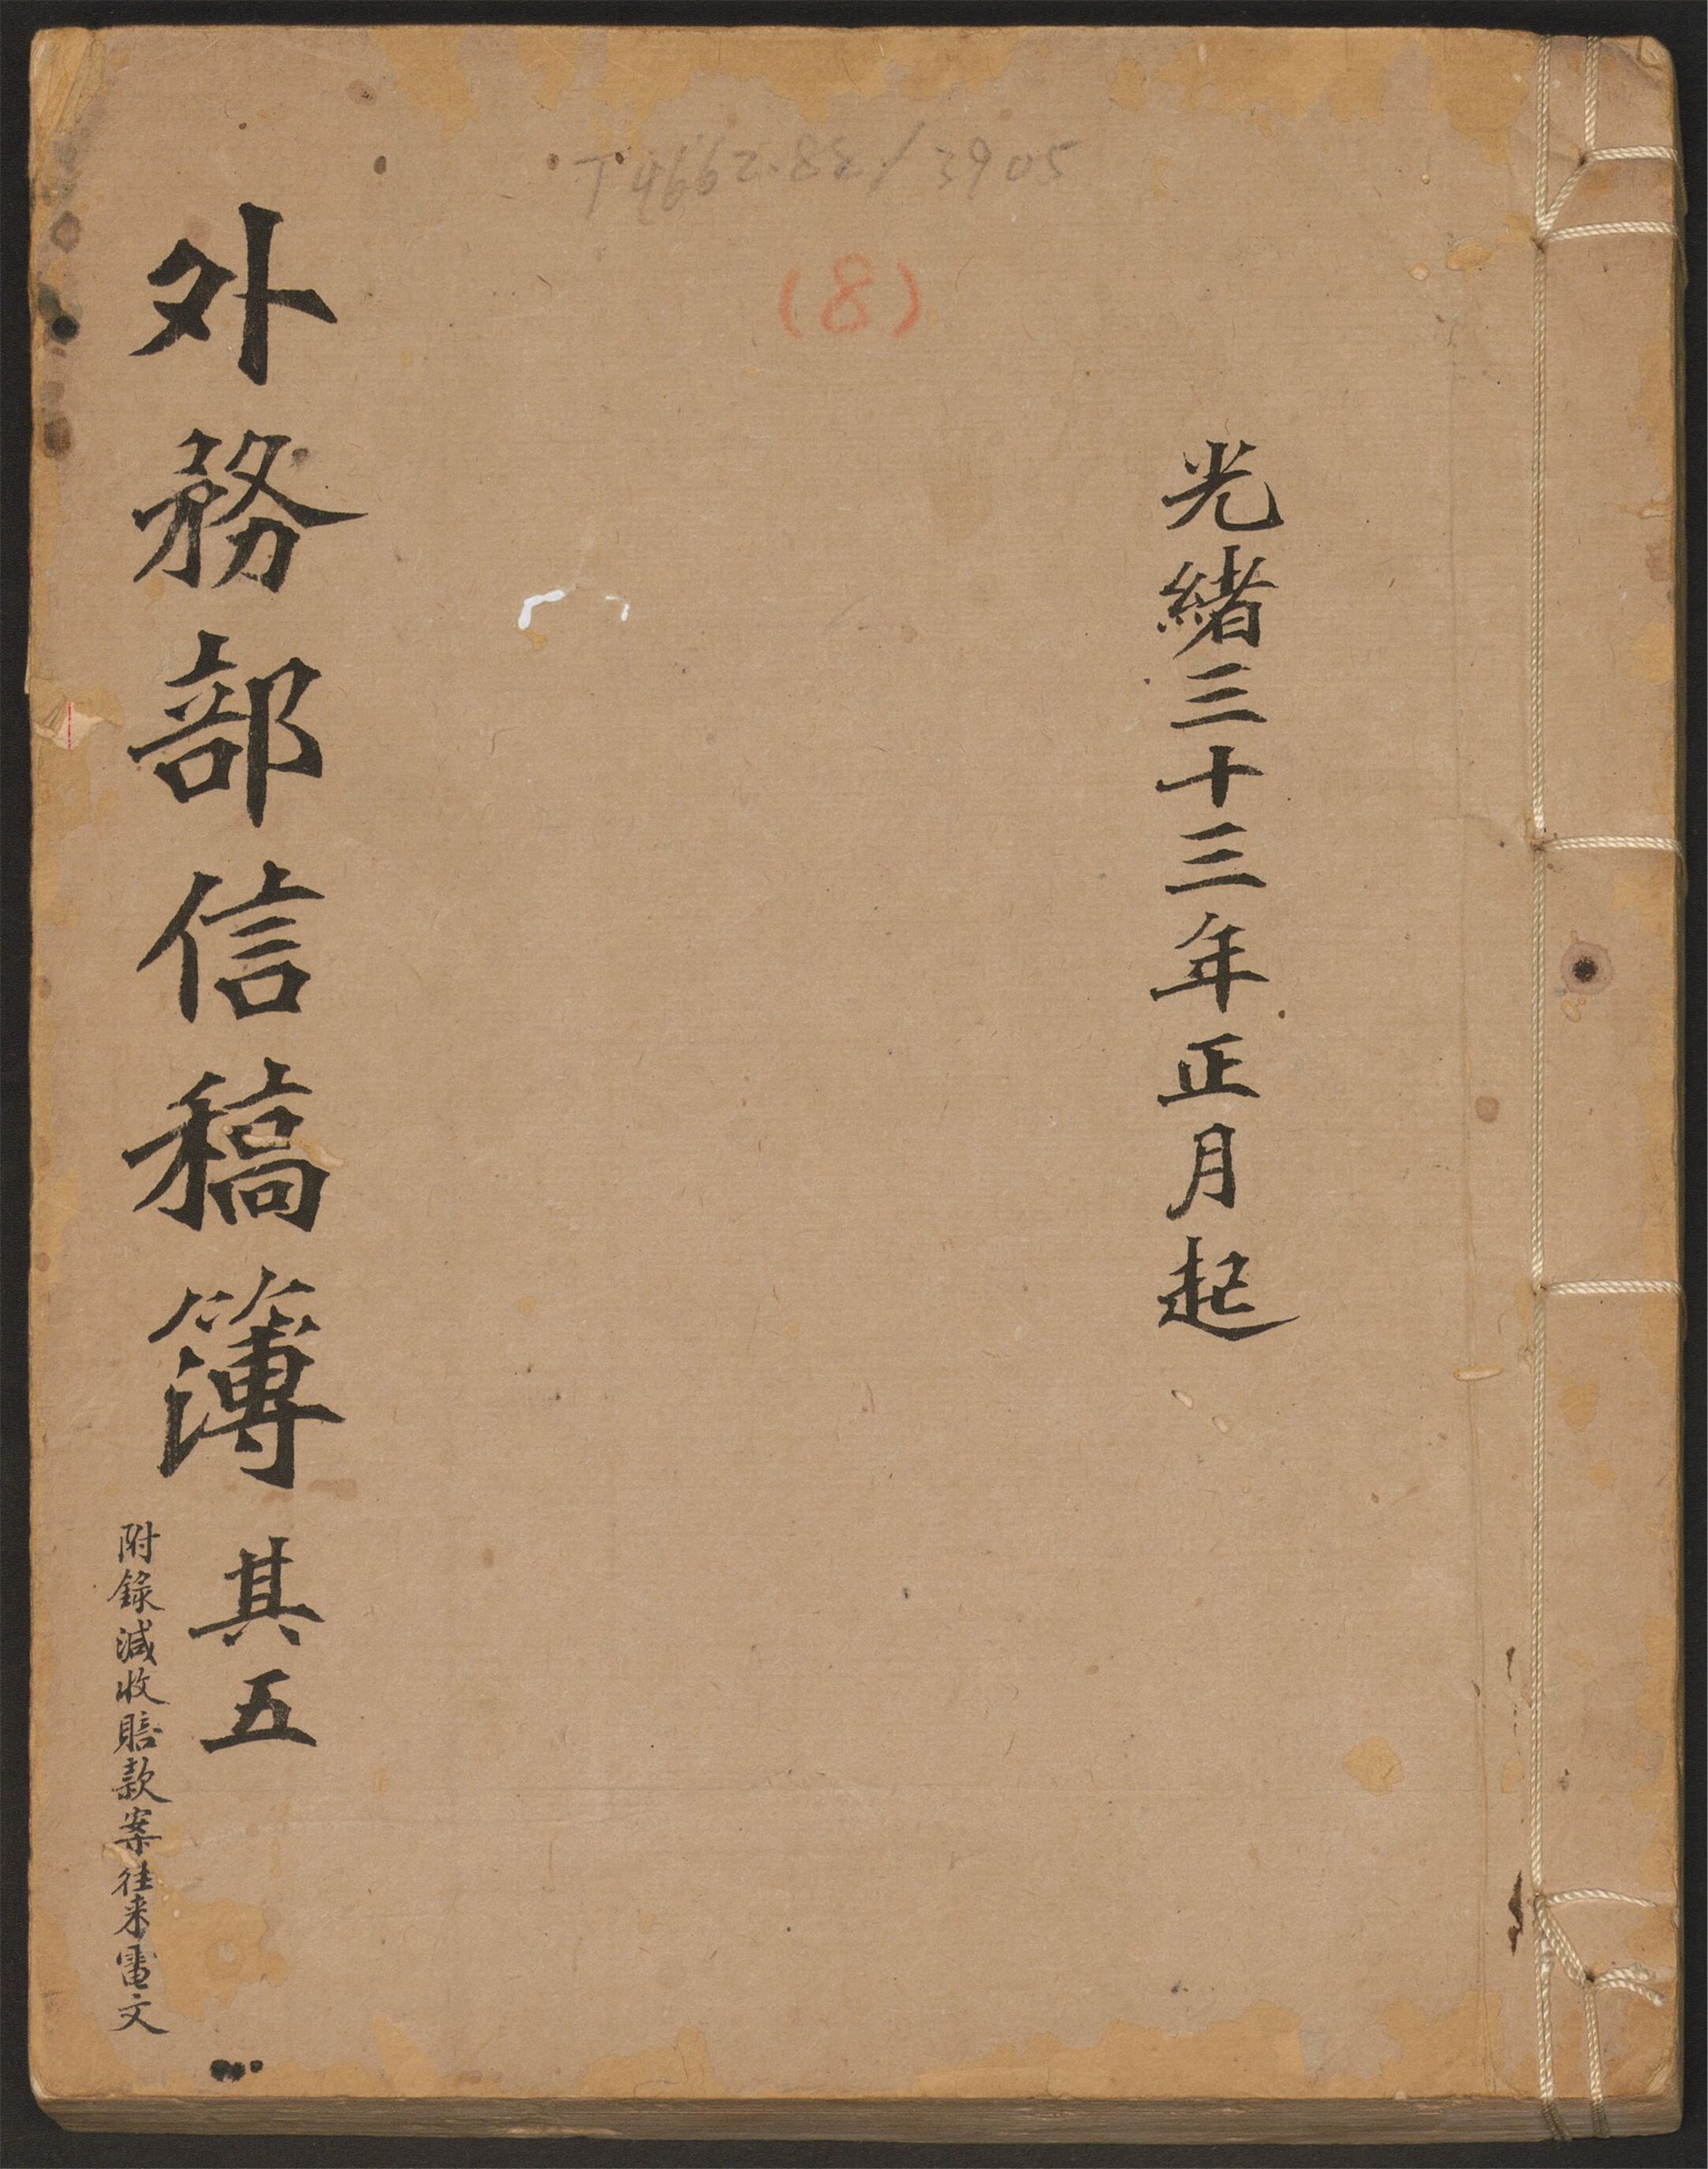 T4662.88/3905
(8)
光緒三十三年正月起
外務部信稿簿其五
附錄減收賠款案往来電文